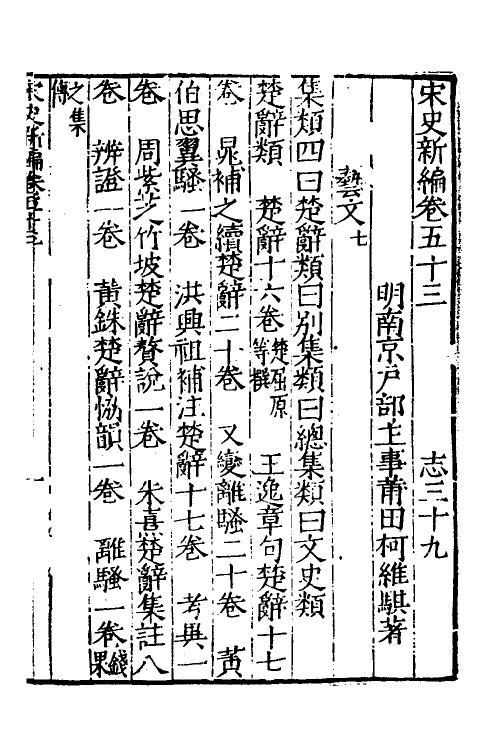 宋史新編卷五十三　志三十九
明南京戶部主事莆田柯維騏著
藝文七
集類四曰楚辭類曰別集類曰總集類曰文史類
楚辭類　楚辭十六卷楚屈原等撰　王逸章句楚辭十七
卷　晁補之續楚辭二十卷　又變離騷二十卷　黃
伯思翼騷一卷　洪興祖補注楚辭十七卷　考異一
卷　周紫芝竹坡楚辭贅說一卷　朱熹楚辭集註八
卷　辨證一卷　黃銖楚辭恊韻一卷　離騷一卷錢杲
之集傳
宋史新編卷五十三
一